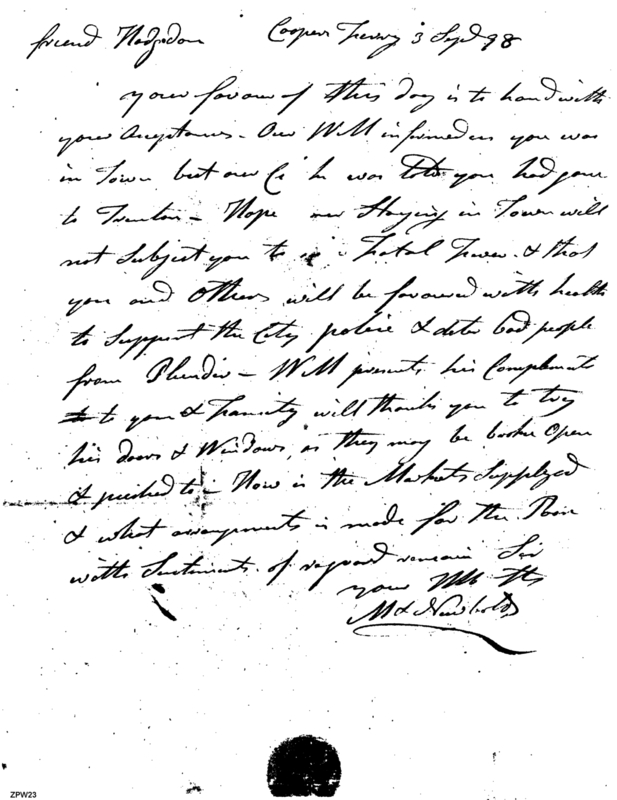 friend Hodgdon Coopers Ferry 3 Sept 98
your favour of this day is to hand with
your Acceptances - Our WM informed us you was
in Town but our Cr he was told you had gone
to Trenton - Hope our Staying in Town will
not Subject you to a Fatal Fever & that
you and others will be favoured with health
to Support the City police & deter bad people
from Plunder - WM presents his Compliments
to you & Family will thank you to try
his doors & Windows, as they may be broke Open
& pushed to - How is the Markets Supplyed
& what arrangements is made for the Poor
with Sentiments of regard remain Sir
your
M & Newbold
ZPW23